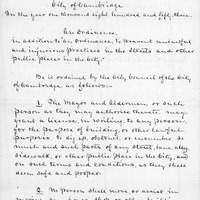 City of Cambridge
In the year one thousand eight hundred and fifty-three.
An Ordinance,
in addition to an Ordinance to prevent unlawful
and injurious practices in the Streets and other
public places in the City.
Be it ordained by the City Council of the City
of Cambridge, as follows:
1. The Mayor and Aldermen, or such
person as they may authorize thereto, may
grant a license, in writing, to any person,
for the purpose of building, or other lawful
purposes, to dig up, obstruct, or encumber so
much and such parts of any street, lane, alley,
sidewalk, or other public place in the City, and
on such terms and conditions, as they shall
deem safe and proper.
2. No person shall move, or assist in